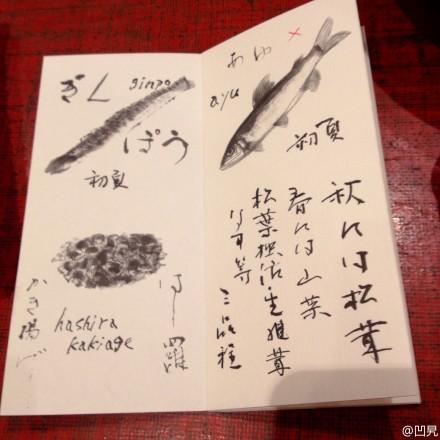 ぎん
ginpo
ぽう
初夏
はし羅
かき揚げ
hashira
kakiage
あゆ
ayu
初夏
秋には松茸
春には山菜
松葉独活・生椎茸
等 三品程
@凹凳